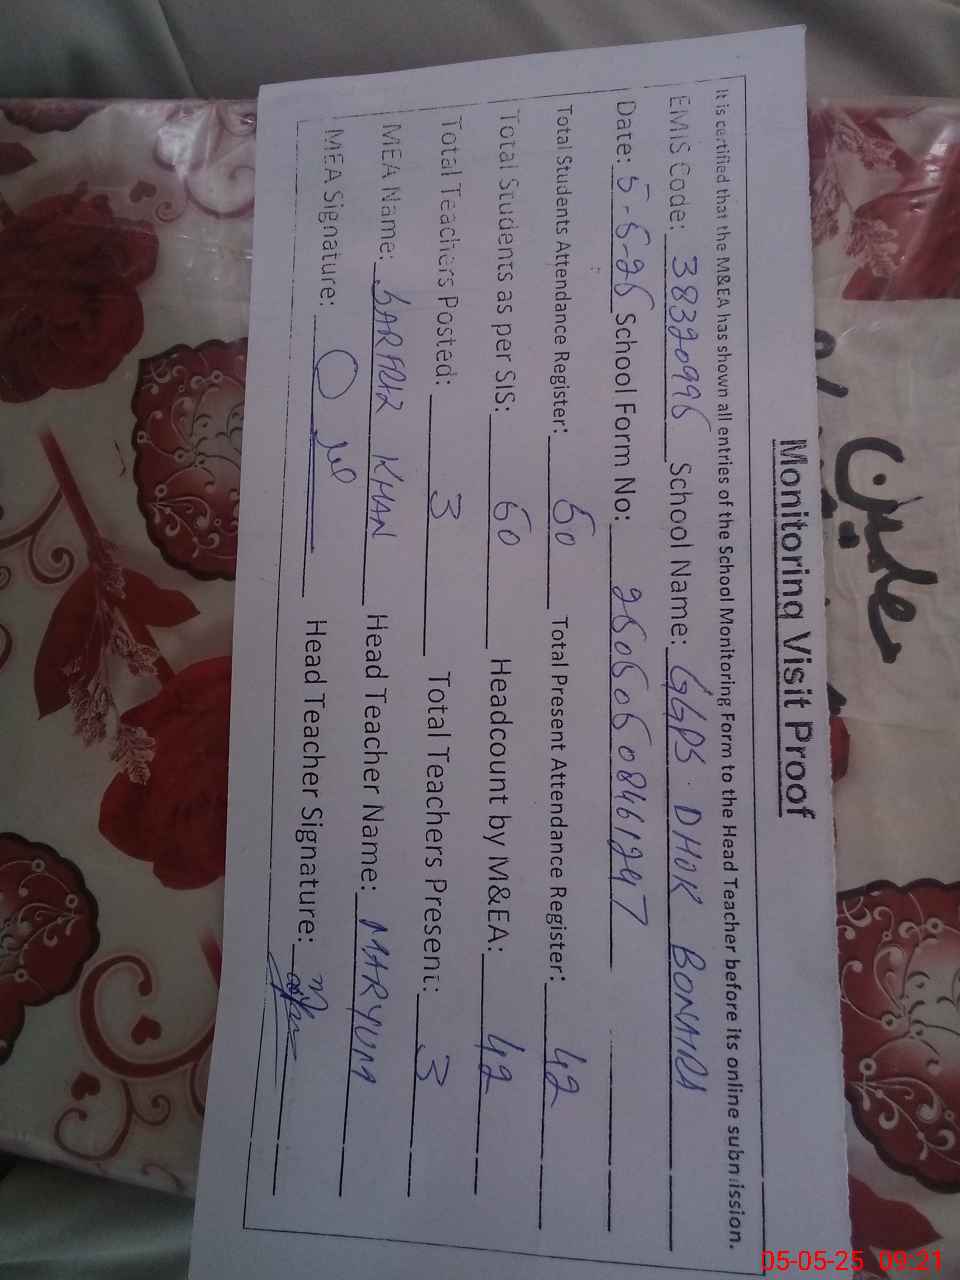 Monitoring Visit Proof
It is certified that the M&EA has shown all entries of the School Monitoring Form to the Head Teacher before its online submission.
EMIS Code: 38320996 School Name: GGPS. DHOK BONAIRA
Date: 5-5-25 School Form No: 25050508461247
Total Students Attendance Register: 60 Total Present Attendance Register: 42
Total Students as per SIS: 60 Headcount by M&EA: 42
Total Teachers Posted: 3 Total Teachers Present: 3
MEA Name: SARFRAZ KHAN Head Teacher Name: MARYUM
MEA Signature: Head Teacher Signature:
05-05-25 09:21